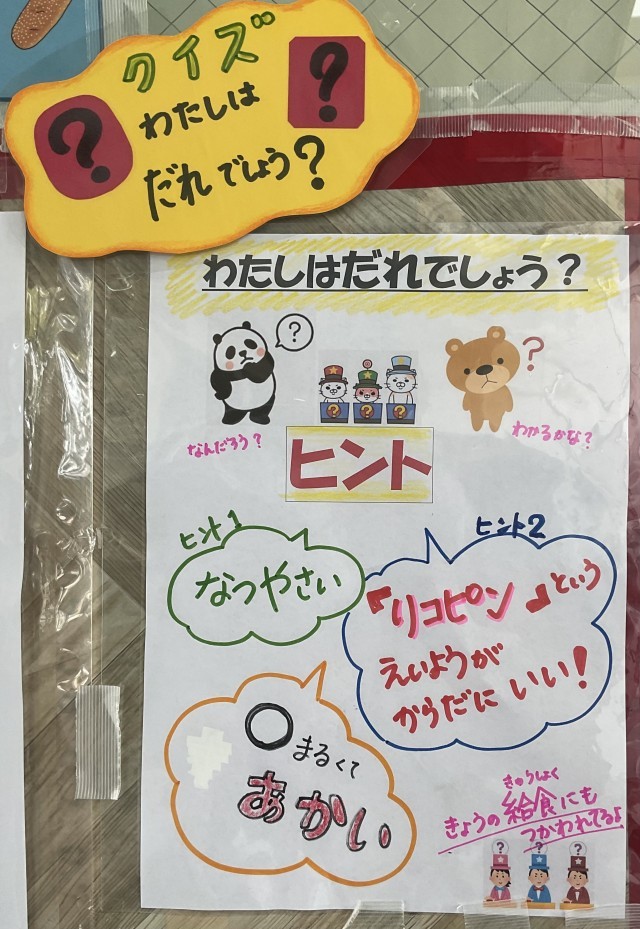 クイズ
?
?
わたしは
だれでしょう?
わたしはだれでしょう？
?
?
なんだろう?
わかるかな?
ヒント
ヒント1
なつやさい
ヒント2
『リコピン』という
えいようが
からだに いい!
まるくて
あかい
きゅうしょく
きょうの給食にも
つかわれてるよ
? ? ?